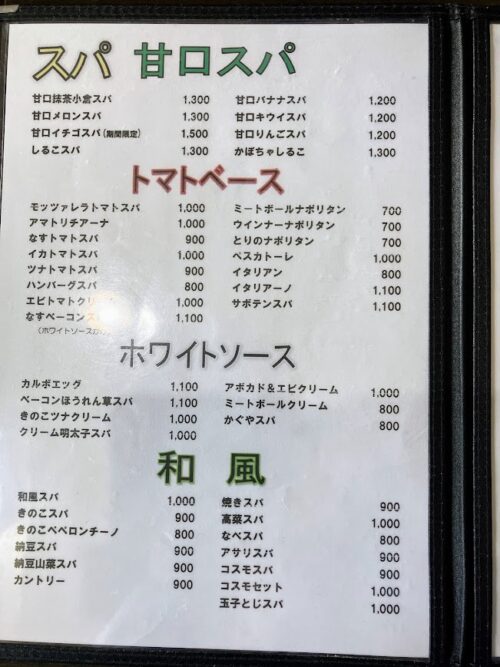 スパ 甘口スパ
甘口抹茶小倉スパ 1,300
甘口メロンスパ 1,300
甘口イチゴスパ(期間限定) 1,500
しるこスパ 1,300
甘口バナナスパ 1,200
甘口キウイスパ 1,200
甘口りんごスパ 1,200
かぼちゃしるこ 1,300
トマトベース
モッツァレラトマトスパ 1,000
アマトリチアーナ 1,000
なすトマトスパ 900
イカトマトスパ 1,000
ツナトマトスパ 900
ハンバーグスパ 800
エビトマトクリーム 1,000
なすベーコンスパ 1,100
(ホワイトソース
ミートボールナポリタン 700
ウインナーナポリタン 700
とりのナポリタン 700
ペスカトーレ 1,000
イタリアン 800
イタリアーノ 1,100
サボテンスパ 1,100
ホワイトソース
カルボエッグ 1,100
ベーコンほうれん草スパ 1,100
きのこツナクリーム 1,000
クリーム明太子スパ 1,000
アボカド&エビクリーム 1,000
ミートボールクリーム 800
かぐやスパ 800
和風
和風スパ 1,000
きのこスパ 900
きのこペペロンチーノ 800
納豆スパ 900
納豆山菜スパ 900
カントリー 900
焼きスパ 900
高菜スパ 1,000
なべスパ 800
アサリスパ 900
コスモスパ 900
コスモセット 1,000
玉子とじスパ 1,000